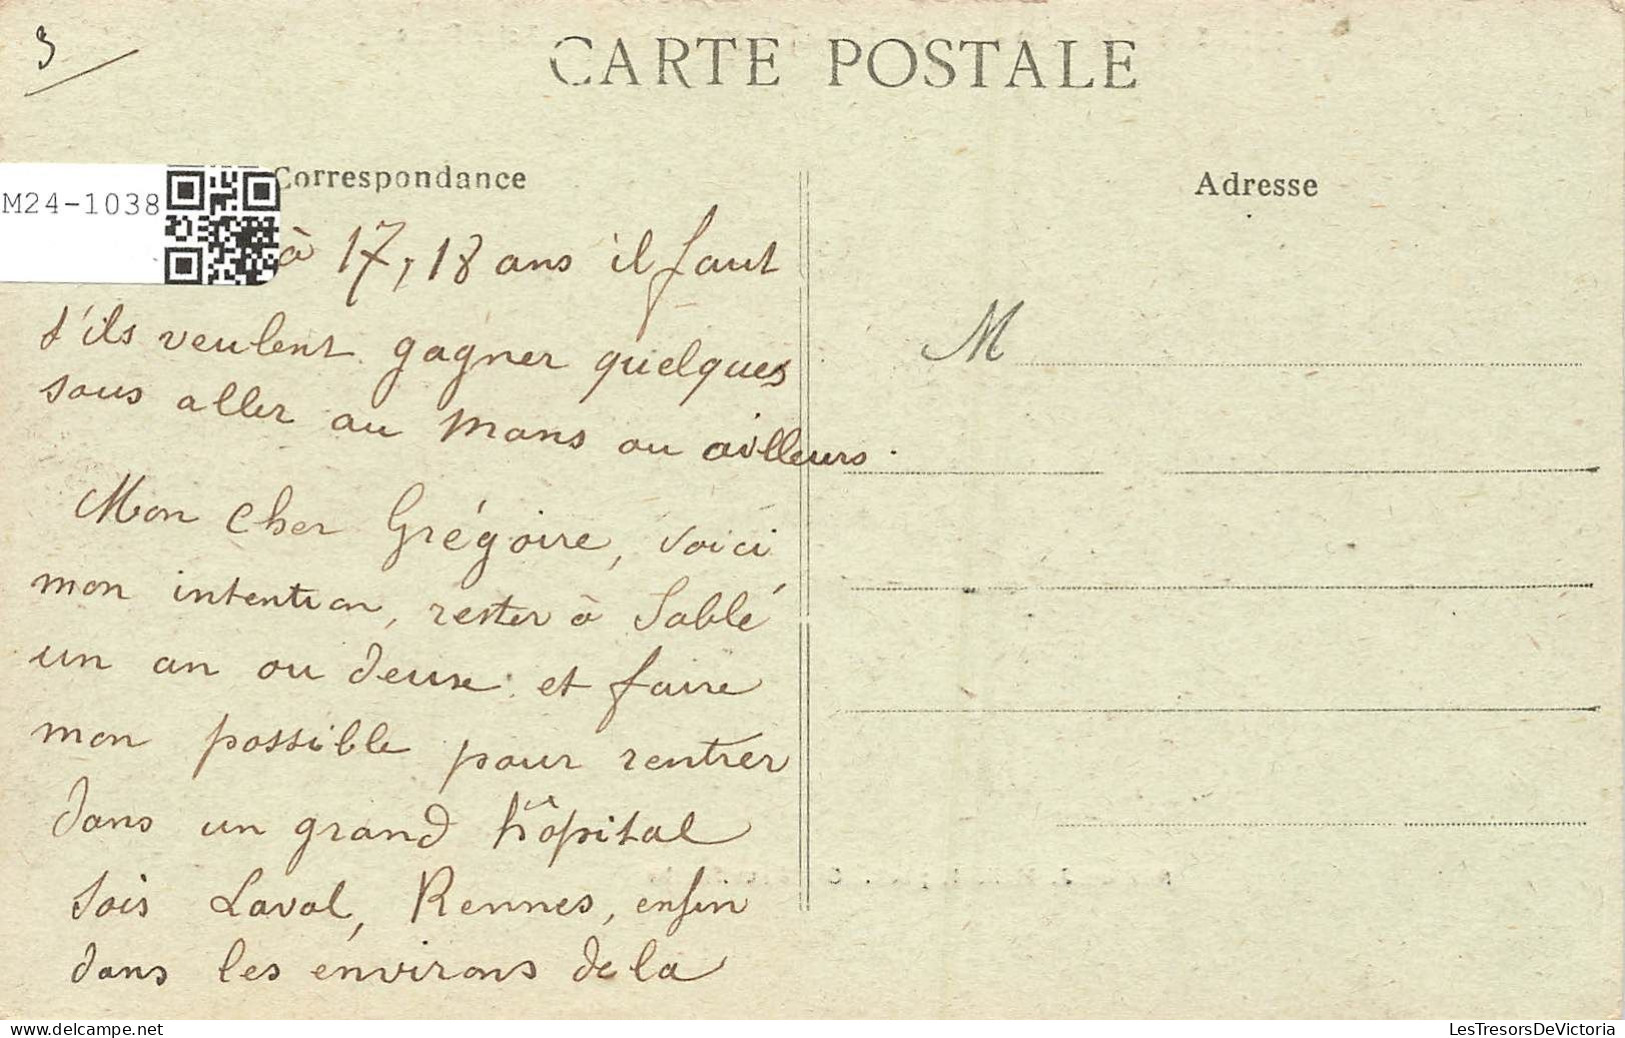 3
CARTE POSTALE
M24-1038
Correspondance
Adresse
à 17, 18 ans il faut
s'ils veulent gagner quelques
sous aller au Mans ou ailleurs.
Mon cher Grégoire, voici
mon intention, rester à Sablé
un an ou deux et faire
mon possible pour rentrer
dans un grand hôpital
sois Laval, Rennes, enfin
dans les environs de la
M
delcampe.net
LesTresorsDeVictoria